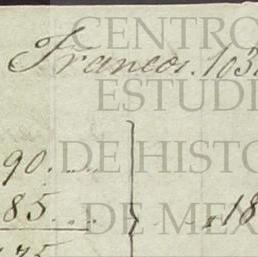 CENTRO
Francos. 103
ESTUDI
DE HISTO
90....
85.... 18
DE MEX